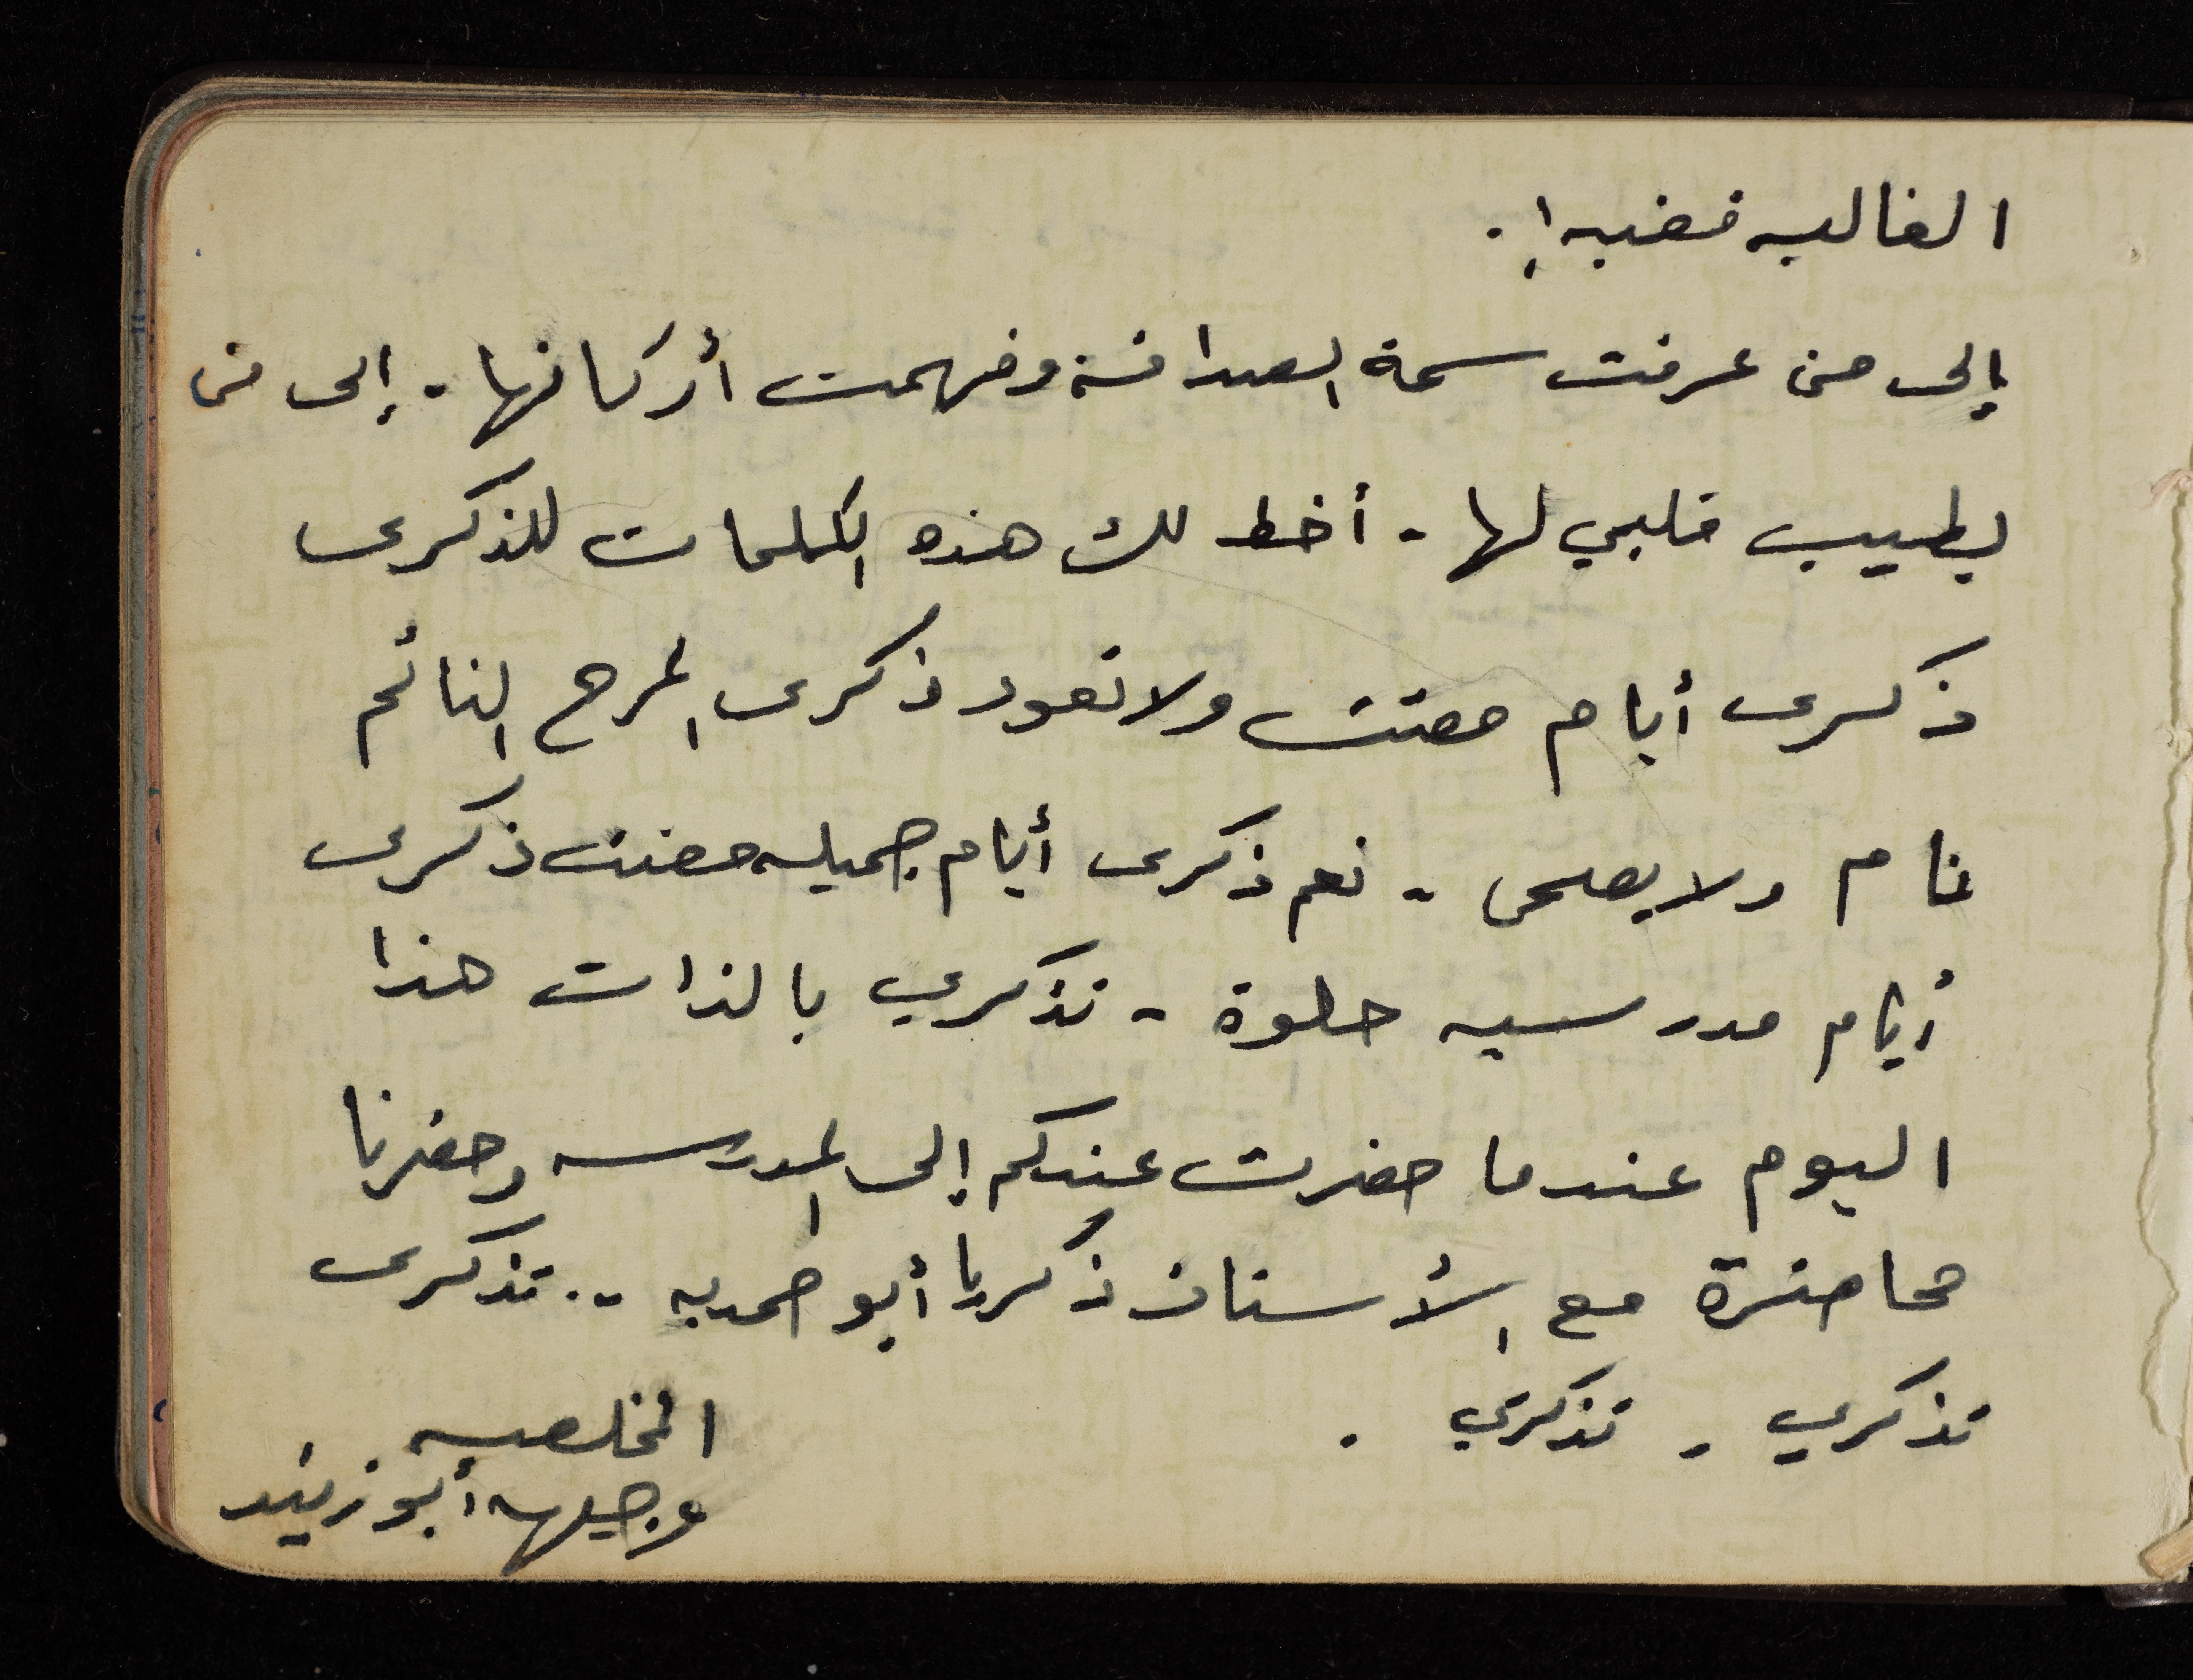 الغاليه قضيه !.
إلى من عرفت سمة الصداقة وفهمت أركانها - إلى من
يطيب قلبي لها - أخط لك هذه الكلمات للذكرى
ذكرى أيام مضت ولا تعود ذكرى المرح النائم
نام ولا يصحى - نعم ذكرى أيام جميله مضت ذكرى
أيام مدرسيه حلوة - تذكري بالذات هذا
اليوم عندما حضرت عندكم إلى المدرسه وحضرنا
محاضرة مع الأستاذ زكريا أبو حمديه .. تذكرى
تذكري - تذكري .
المخلصه
وجيهه أبو زينه